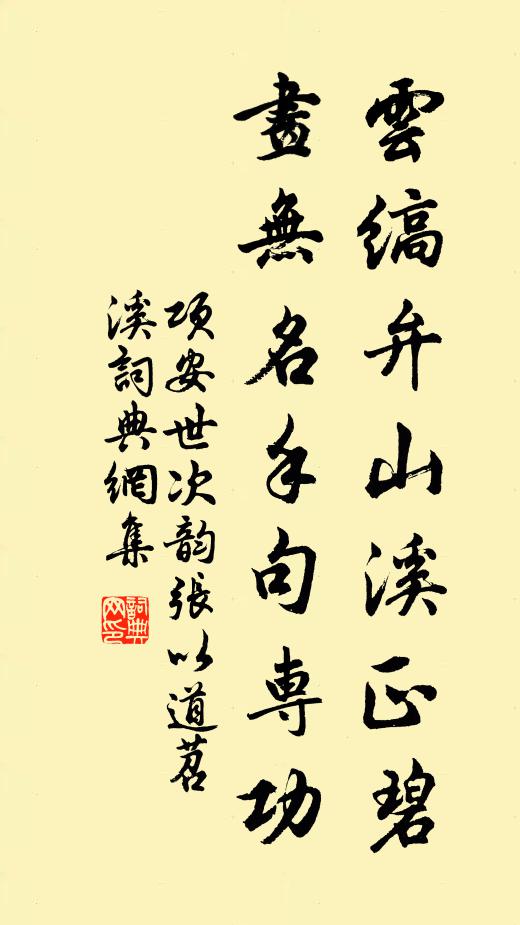 雲縞弁山溪正碧
畫無名手句専功
項安世次韵張以道苕
溪詞典網集
詞典网印